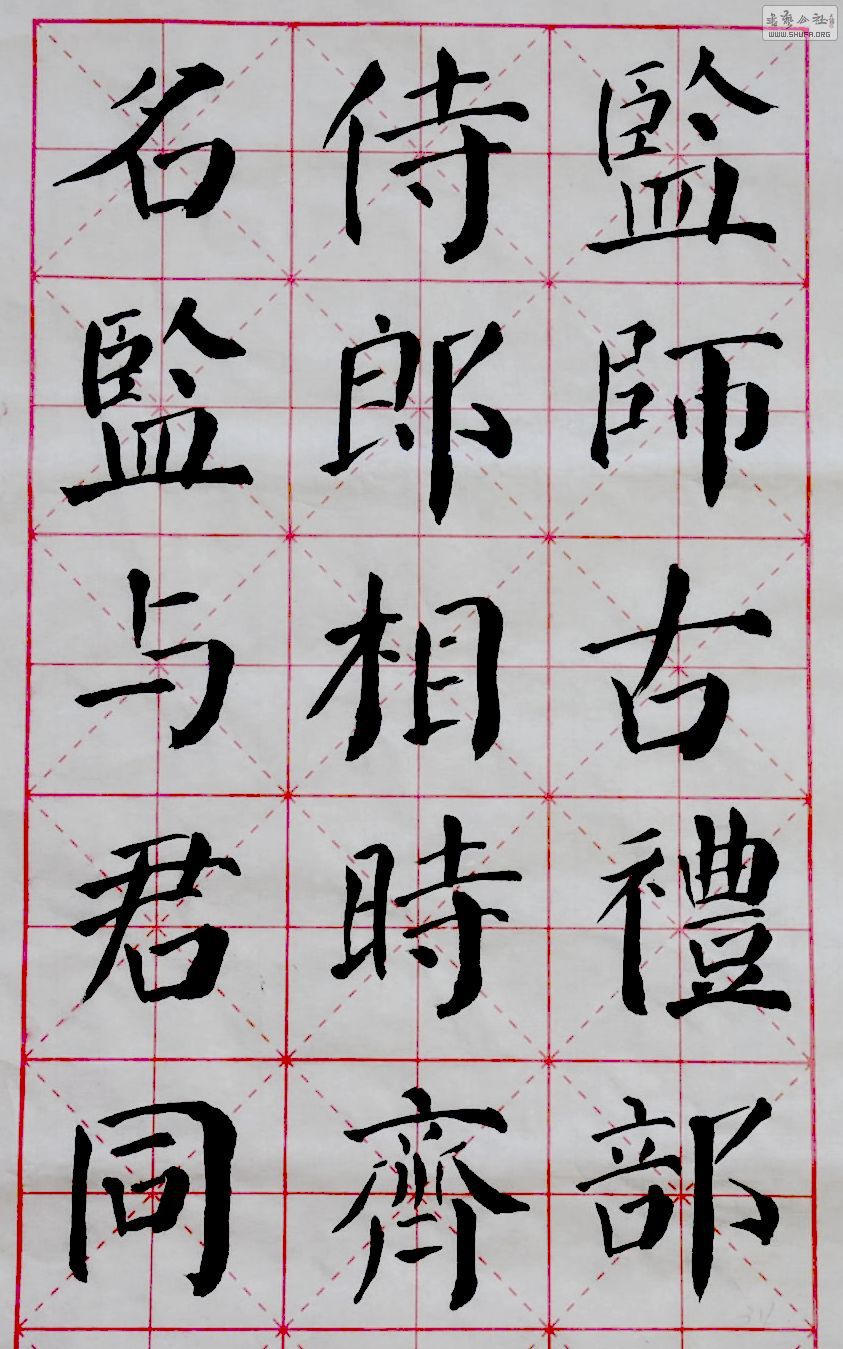 監師古禮部
侍郎相時齊
名監与君同
書藝公社
WWW.SHUFA.ORG